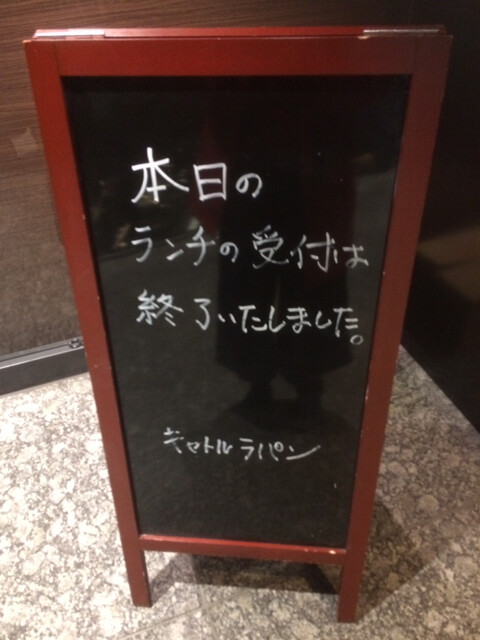 本日の
ランチの受付は
終了いたしました。
キャトルラパン